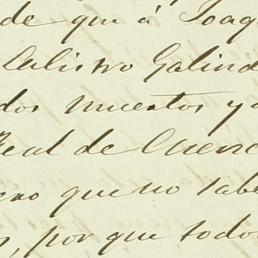 de que á Joaq
Calistro Galind
dos muertos y a
Real de Cuenc
pero que no sabe
s, por que todo